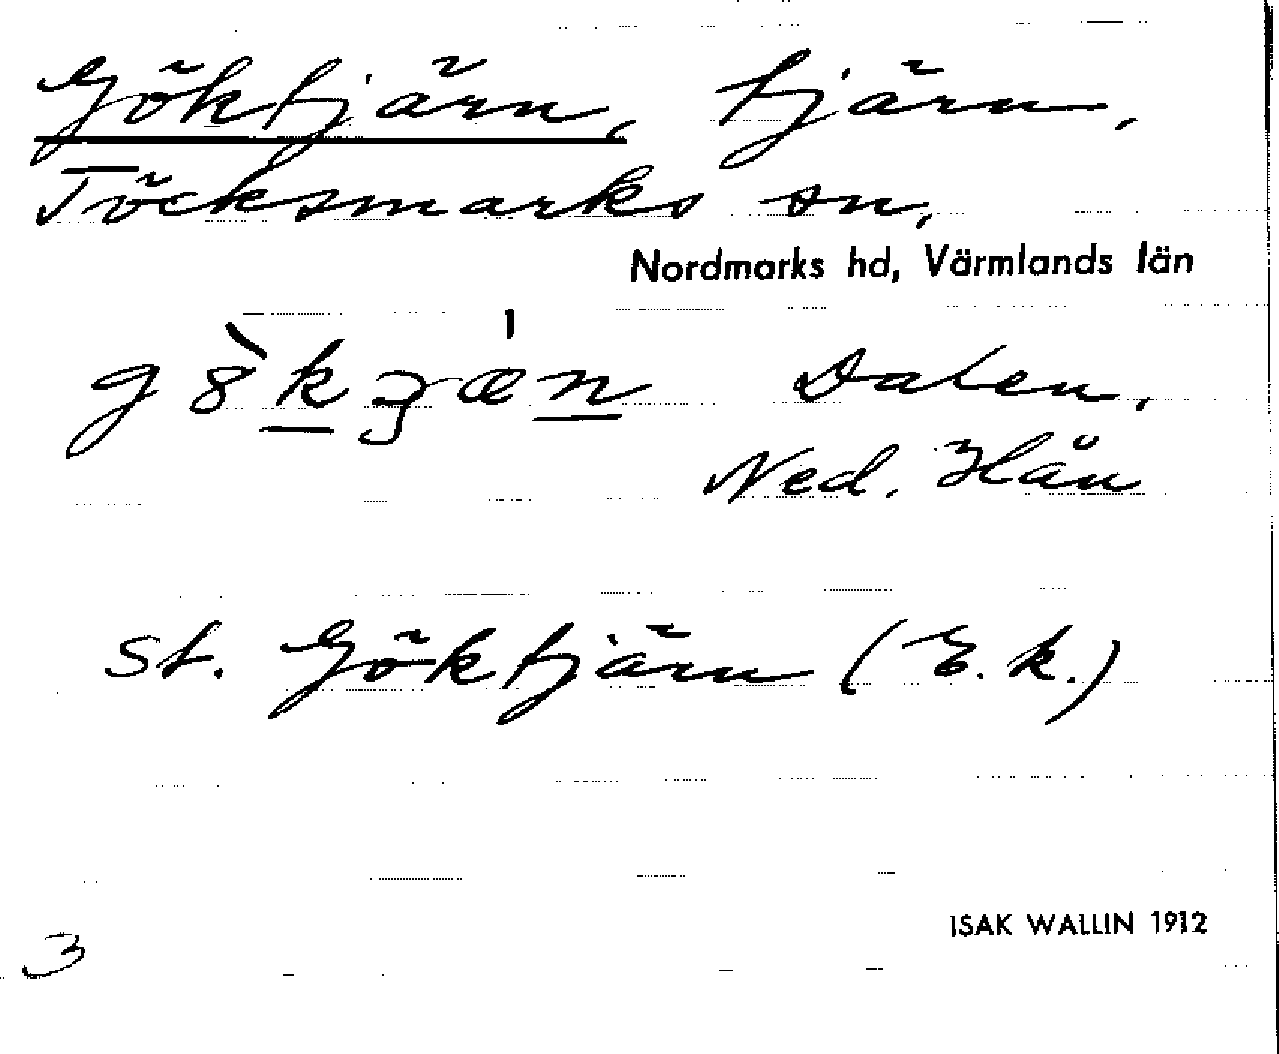 Göktjärn, tjärn,
Töcksmarks sn,
Nordmarks hd, Värmlands län
Dalen,
Ned. Hän
St. Göktjärn (E. k.)
ISAK WALLIN 1912
3